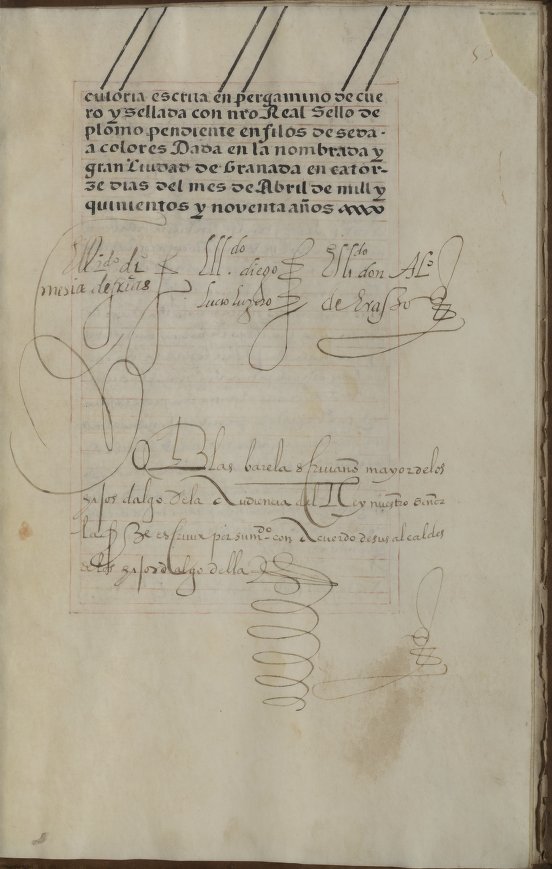 cutoria escrita en pergamino de cue
ro y sellada con nro Real Sello de
plomo pendiente en filos de seda
a colores Dada en la nombrada y
gran Ciudad de Granada en cator-
ze dias del mes de Abril de mill y
quinientos y noventa años
El ldo. diego
El ldo don Alº
de Erasso
Blas barela escrivano mayor de los
hijos dalgo de la Audiencia del Rey nuestro señor
la fize escrivir por su mdo. con Acuerdo de sus alcaldes
de los hijos dalgo della